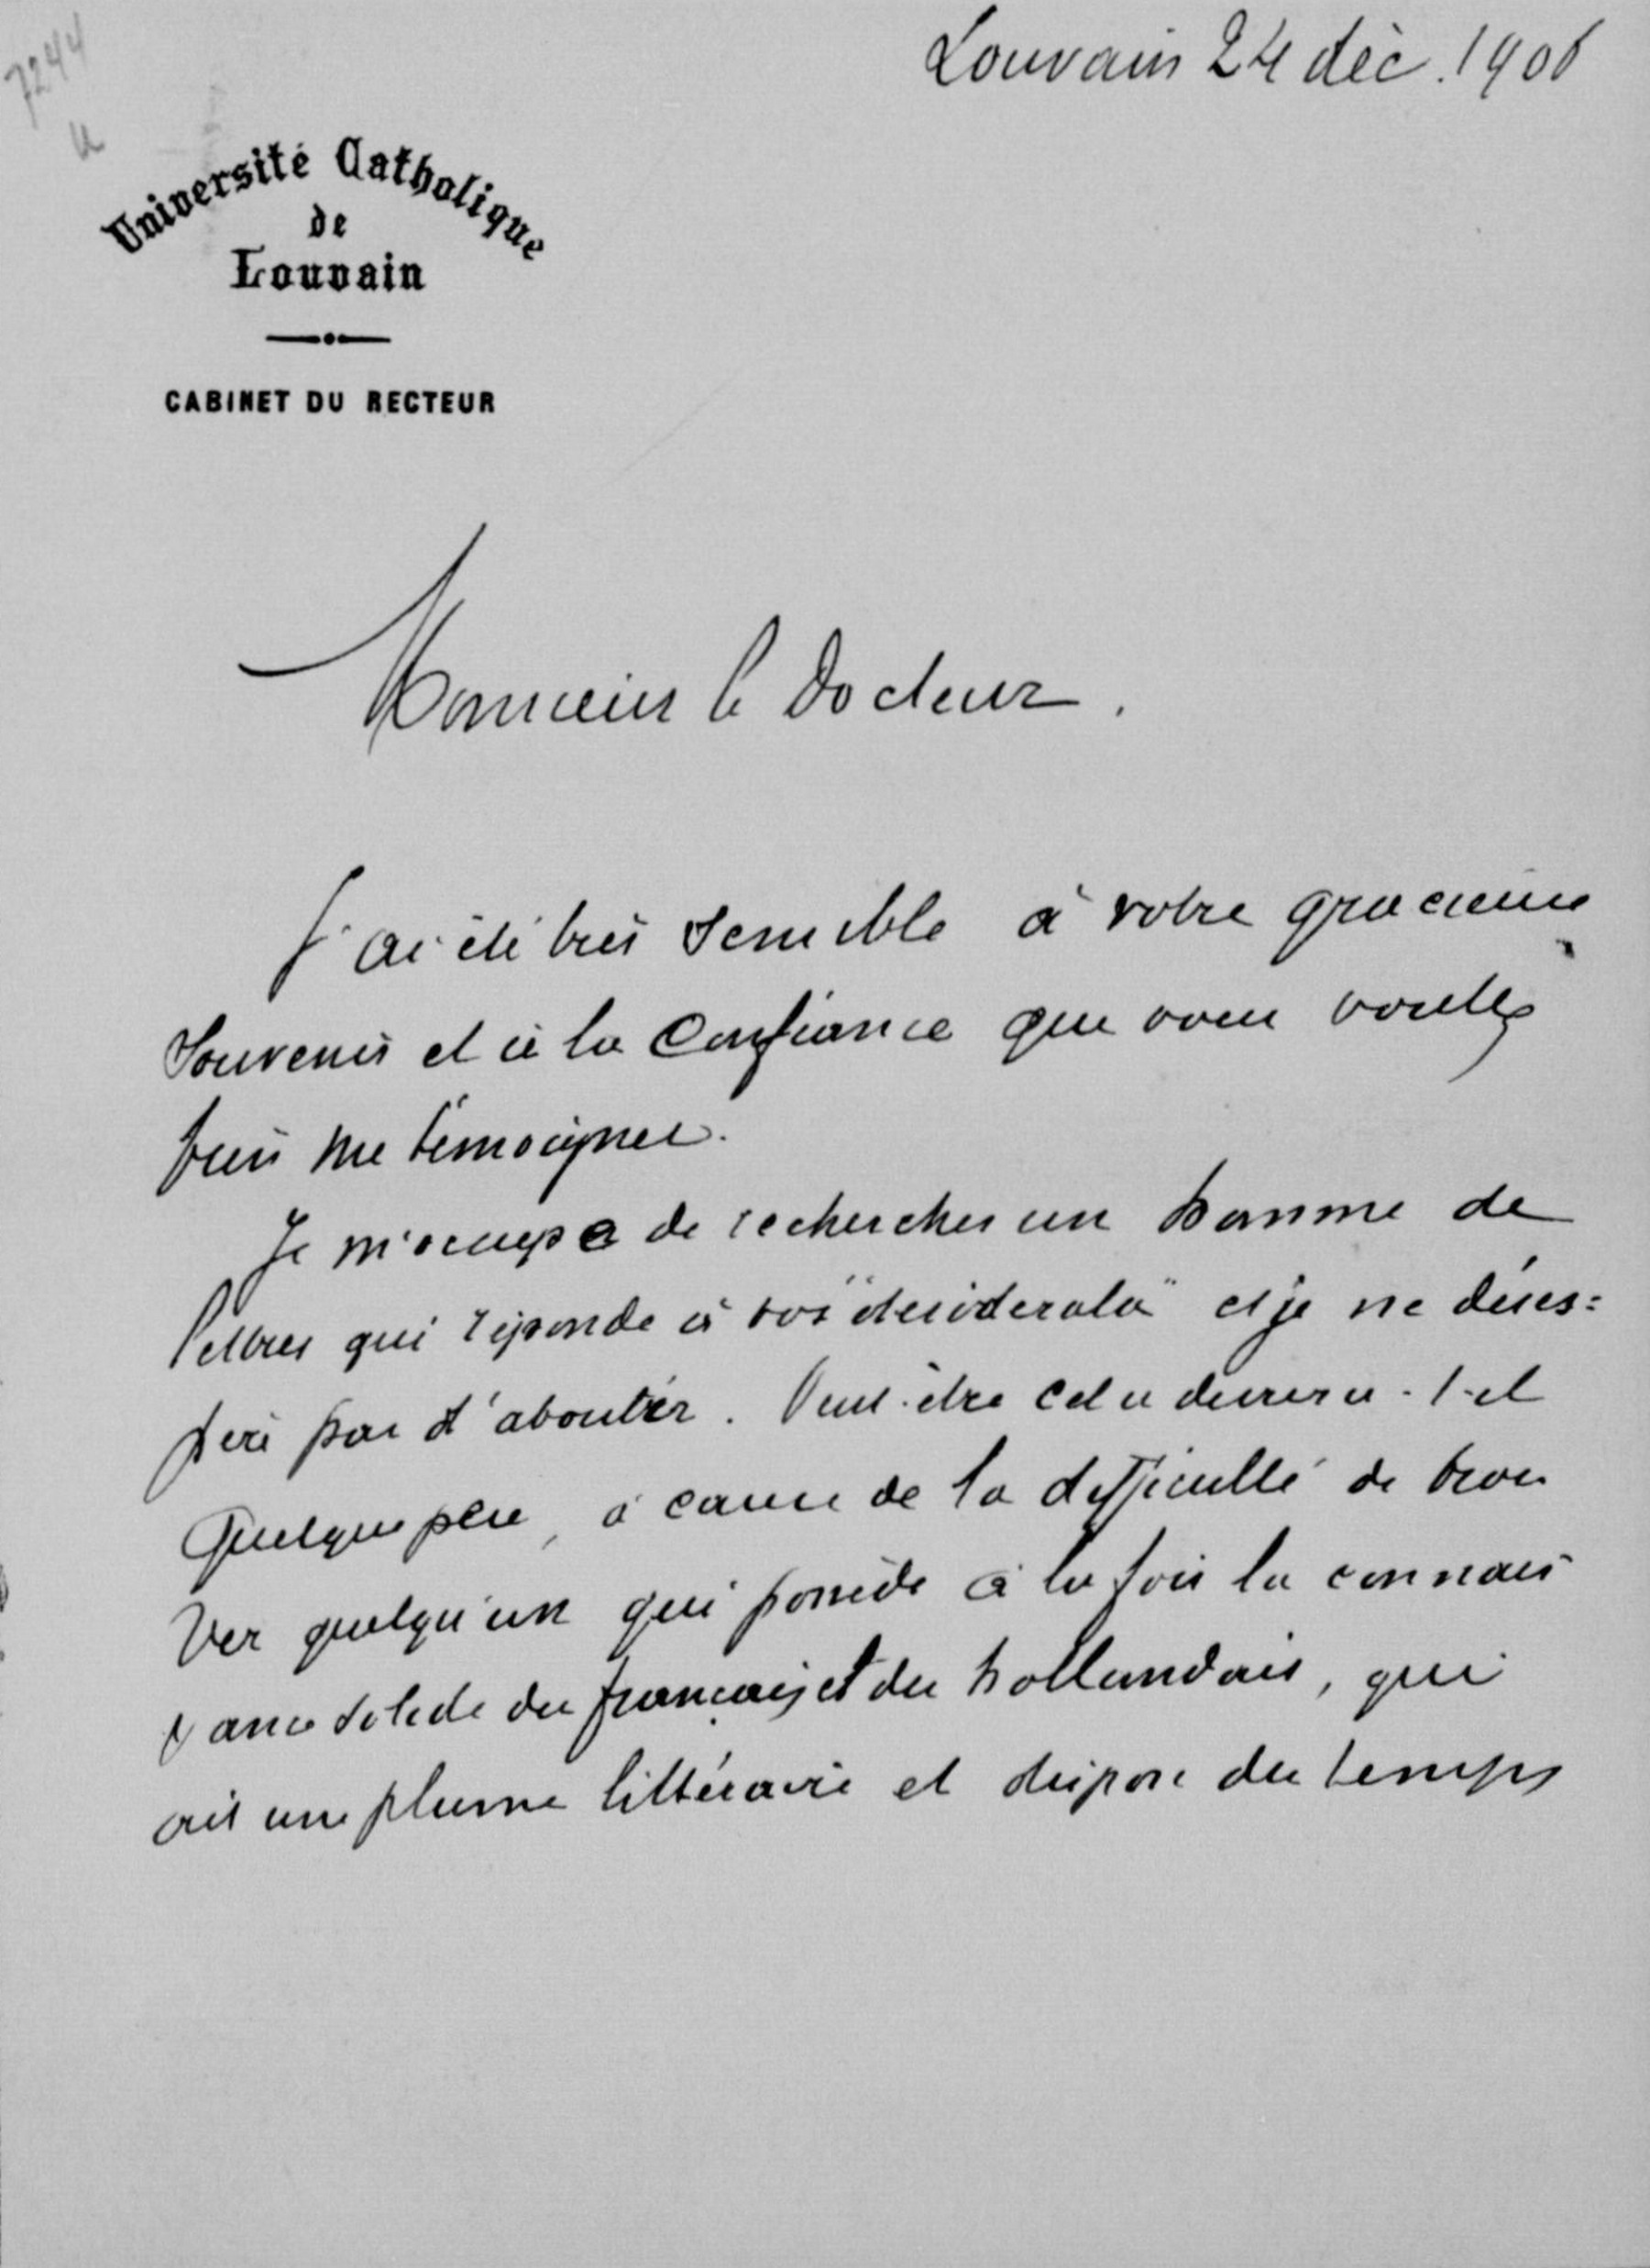 7244
Louvain 24 déc. 1906
Université Catholique
de
Louvain
CABINET DU RECTEUR
Monsieur le Docteur.
J'ai été très sensible à votre gracieux
souvenir et à la confiance que vous voulez
bien me témoigner.
Je m'occupe de rechercher un homme de
lettres qui réponde à vos "desiderata" et je ne déses=
père pas d'aboutir. Peut-être cela durera-t-il
quelque peu, à cause de la difficulté de trou
ver quelqu'un qui possède à la fois la connais
sance solide du français et du hollandais, qui
ait une plume littéraire et dispose du temps